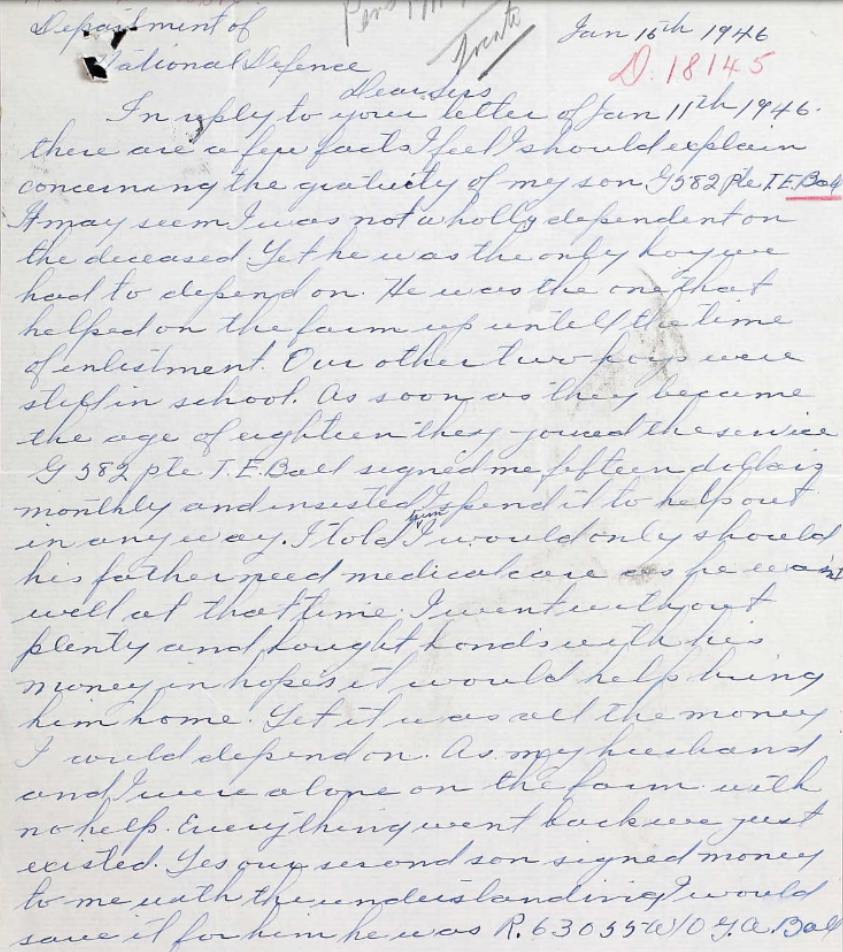 Department of
Jan 16th 1946
National Defence
D. 18145
Dear Sirs
In reply to your letter of Jan 11th 1946.
there are a few facts I feel I should explain
concerning the gratuity of my son G582 Pte T.E. Ball
It may seem I was not wholly dependent on
the deceased. Yet he was the only boy we
had to depend on. He was the one that
helped on the farm up untell the time
of enlistment. Our other two boys were
still in school. As soon as they became
the age of eighteen they joined the service
G 582 pte T.E. Ball signed me fifteen dollars
monthly and insisted I spend it to help out
in any way. I told him I would only should
his father need medical care as he wasn't
well at that time. I went without
plenty and bought bonds with his
money in hopes it would help bring
him home. Yet it was all the money
I could depend on. As my husband
and I were alone on the farm with
no help. Everything went back we just
existed. Yes our second son signed money
to me with the understanding I would
save it for him he was R.63055 W/O G.A. Ball